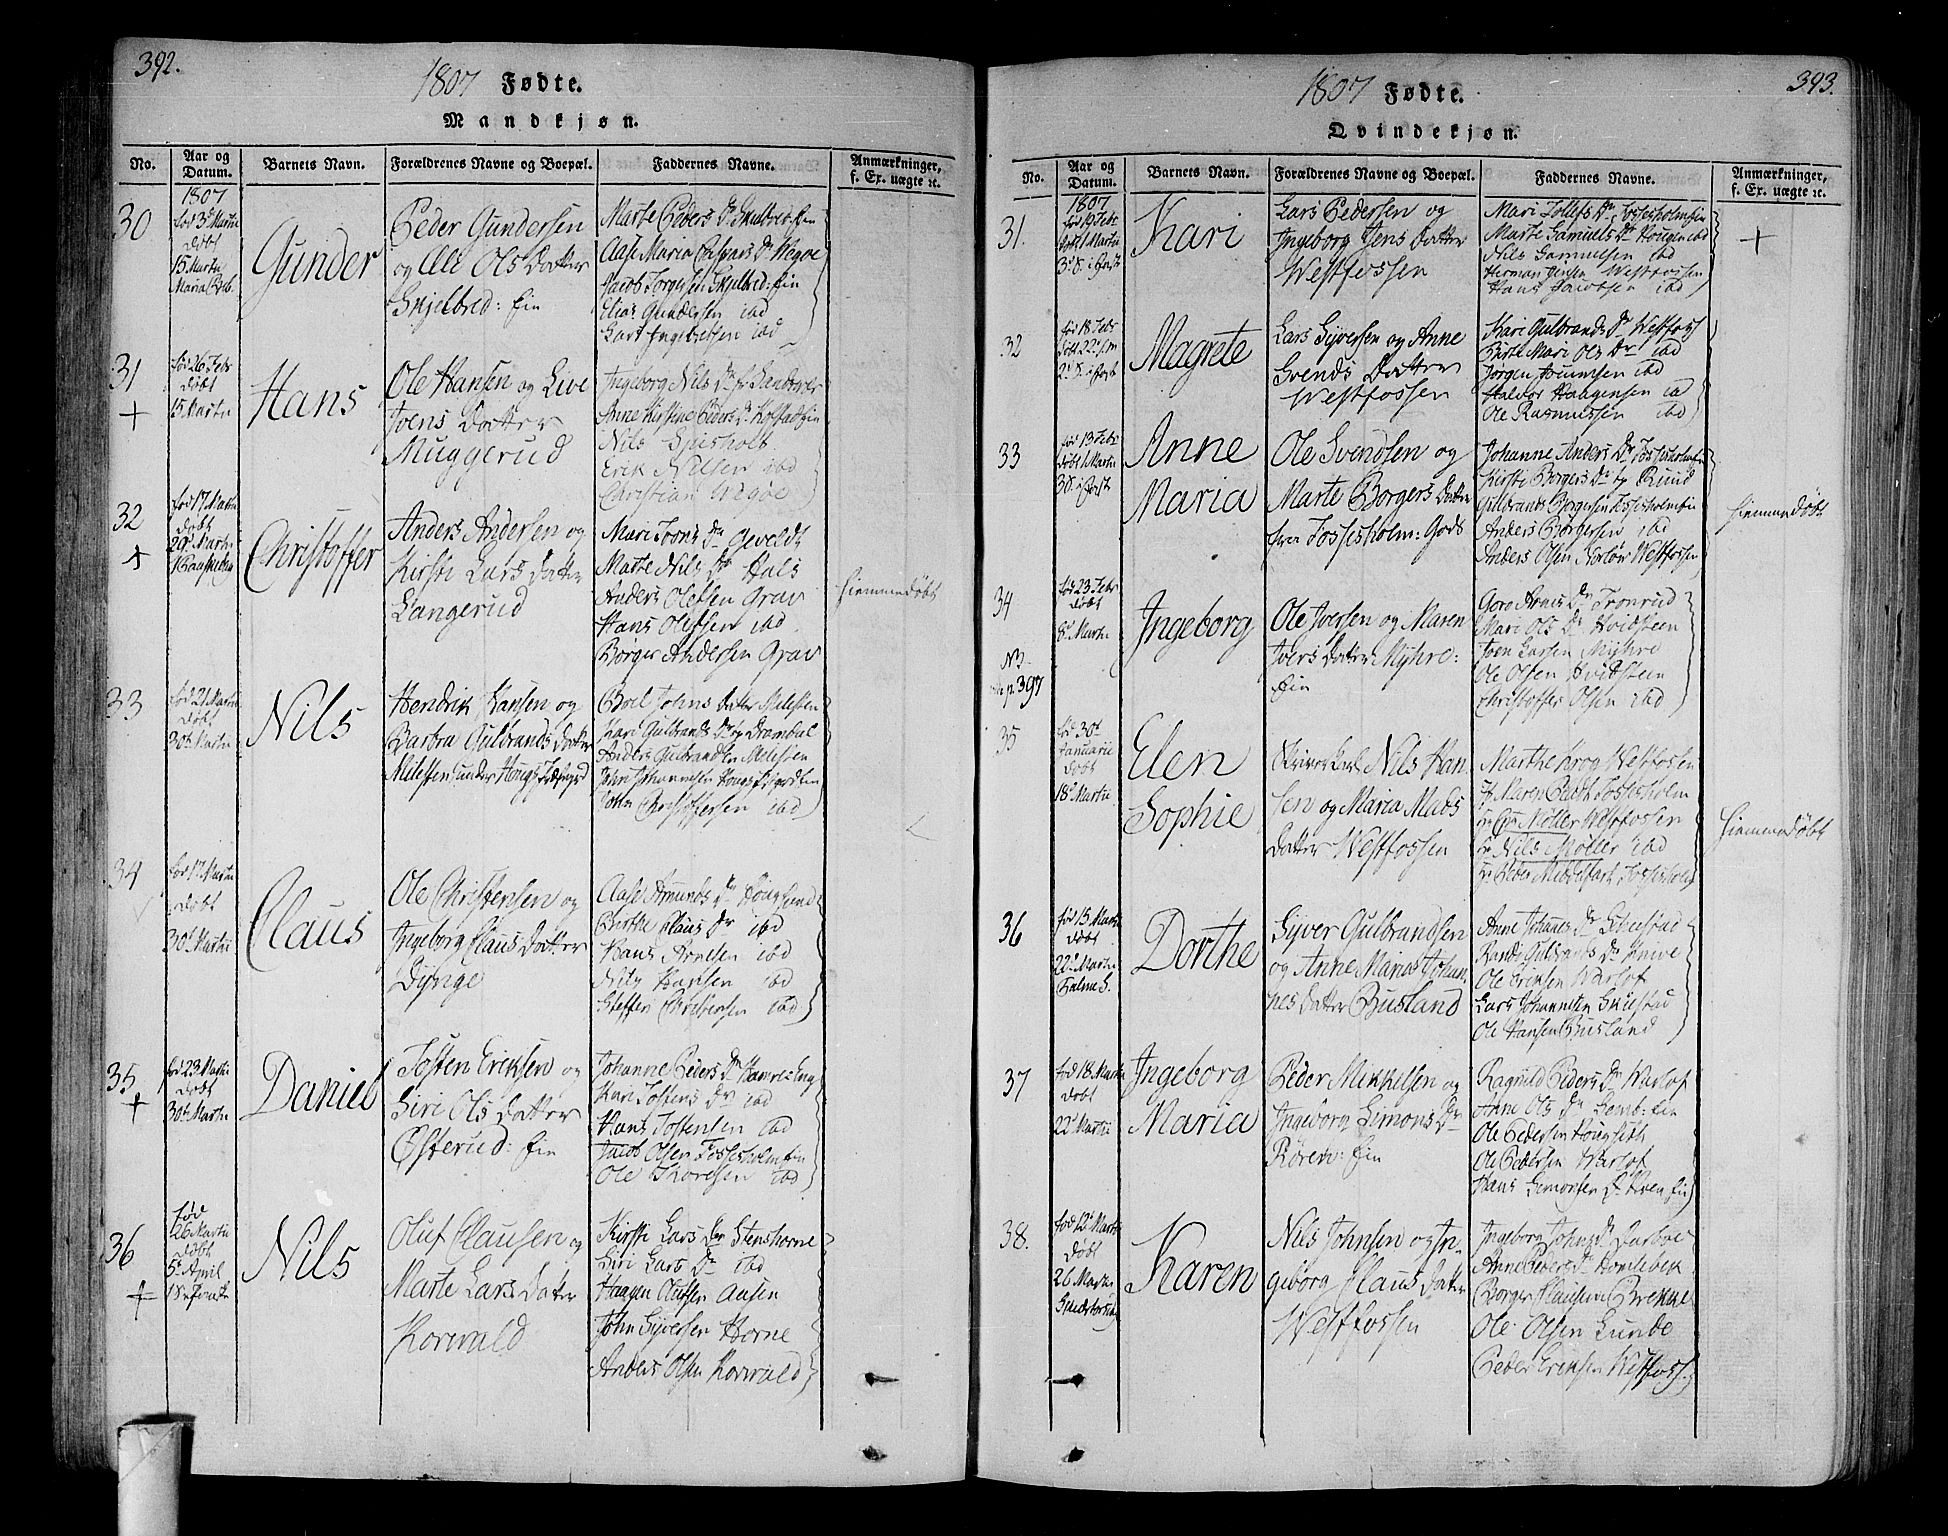 392.
1807 Fødte.
Mandkjøn.
No.
Aar og Datum.
Barnets Navn.
Forældrenes Navne og Boepæl.
Faddernes Navne.
Anmærkninger, f. Ex. uægte ꝛc.
1807
30
fød 3d Martii
døbt
15 Martii
Gunder
Peder Gundersen
og Eli Ols Datter
Skjelbred: Ein
Marte Peders Dr Skielbred: Ein
Aase Maria Caspars Dr Wegøe
Jacob Jørgensen Skjelbred: Ein
Elias Gundersen ibd
Lars Ingebretsen ibd
31
+
fød 26 Febr
døbt
15 Martii
Hans
Ole Hansen og Live
Ivens Datter
Muggerud
Ingeborg Nils Dr
Anne Kirstine Peders Dr
Nils Spisholt
Erik Nilsen ibd
Christian Wegøe
32
+
fød 17 Martii
døbt
29d Martii
Christoffer
Anders Andersen og
Kirsti Lars Datter
Langerud
Mari Toens Dr Geveldt
Marte Nils Dr Hals
Anders Olefsen Grav
Hans Olefsen ibd
Børger Andersen Grav
Hiemmedøbt
33
fød 21 Martii
døbt
30te Martii
Nils
Hendrik Hansen og
Barbra Gulbrands Datter
Milesten under Hougs Præstegd
Boel Johns Datter Milesten
Kari Gulbrands Dr Dramdal
Anders Gulbrandsen Milesten
John Johannesen Hougs Prgd Ein
John Christoffersen ibd
34
fød 17 Martii
døbt
30te Martii
Claus
Ole Christensen og
Ingeborg Claus Datter
Dynge
Aase Amunds Dr Hougsund
Birthe Claus Dr ibd
Hans Arnesen ibd
Nils Hansen ibd
Steffen Christensen ibd
35
+
fød 23 Martii
døbt
30te Martii
Daniel
Tosten Eriksen og
Siri Ols Datter
Østerud: Ein
Johanne Peders Dr Hamre: Eng
Kari Tostens Dr ibd
Hans Tostensen ibd
Jacob Olsen Fossesholm Ein
Ole Thoresen ibd
36
+
fød
26 Martii
døbt
5te April
Nils
Oluf Clausen og
Marte Lars Datter
Korvald
Kirsti Lars Dr Stenshorne
Siri Lars Dr ibd
Haagen Olufsen Aasen
John Syversen Horne
Anders Olsen Korvald
393.
1807 Fødte.
Qvindekjøn.
No.
Aar og Datum.
Barnets Navn.
Forældrenes Navne og Boepæl.
Faddernes Navne.
Anmærkninger, f. Ex. uægte ꝛc.
1807
31.
fød 19 Febr
døbt 1 Martii
3d S. i Fast
Kari
Lars Pedersen og
Ingeborg Jens Datter
Westfossen
Mari Tollefs Dr Fossesholm Ein
Marte Samuels Dr Hougen ibd
Nils Samuelsen ibd
Herman Jensen Westfossen
Hans Jacobsen ibd
+
32
fød 18 Febr
døbt 22d s.m
2d S. i Fast
Magrete
Lars Syversen og Anne
Svends Datter
Westfossen
Kari Gulbrands Dr Westfoss
Birte Mari Ols Dr ibd
Jørgen ibd
Halvor Haagensen ibd
Ole Rasmussen ibd
33
fød 13 Febr
døbt 1 Martii
3 S. i Fast
Anne
Maria
Ole Svendsen og
Marte Børgers Datter
fra Fossesholm: Gods
Johanne Anders Dr Fossesholm Ein
Kirsti Børgers Dr Ruud
Gulbrand Børgersen Fossesholm Ein
Anders Børgersen ibd
Anders Olsen Sørløv Westfossen
Hiemmedøbt
34
NB
vide p. 397
fød 23 Febr
døbt
8d Martii
Ingeborg
Ole Iversen og Maren
Ivers Datter Myhre:
Ein
Goro Arnes Dr Tronrud
Mari Ols Dr Hvidsteen
Iven Larsen Myhre
Ole Olsen Hvidsteen
Christoffer Olsen ibd
35
fød 30te
Januarii
døbt
18d Martii
Elen
Sophie
Skriverkarl Nils Han
sen og Maria Mads
Datter Westfossen
Marthe Krog Westfosen
Jf Maren Fossesholm
Hr Møller Westfossen
Hr Nils Møller ibd
Hr Peder Middelfart Fossesholm
Hiemmedøbt
36
fød 15 Martii
døbt
22d Martii
Palme S.
Dorthe
Syver Gulbrandsen
og Anne Maria Johan
nes Datter Busland
Anne Johannes Dr Skiestad
Randi Gulbrands Dr Knive
Ole Eriksen Warlof
Lars Johannesen Skiestad
Ole Hansen Busland
37
fød 18 Martii
døbt
22d Martii
Ingeborg
Maria
Peder Mikkelsen og
Ingeborg Simons Dr
Røren: Ein
Ragnild Peders Dr Warlof
Anne Ols Dr Semb: Ein
Ole Pedersen Hougseth
Ole Pedersen Warlof
Hans Simonsen
38.
fød 12d Martii
døbt
26 Martii
Skiertorsdag
Karen
Nils Johnsen og In-
geborg Claus Datter
Westfossen
Ingeborg Johns Dr Darboe
Anne Peders Dr Homlebek
Børger Clausen Brekke
Ole Olsen Lunde
Peder Eriksen Westfoss.